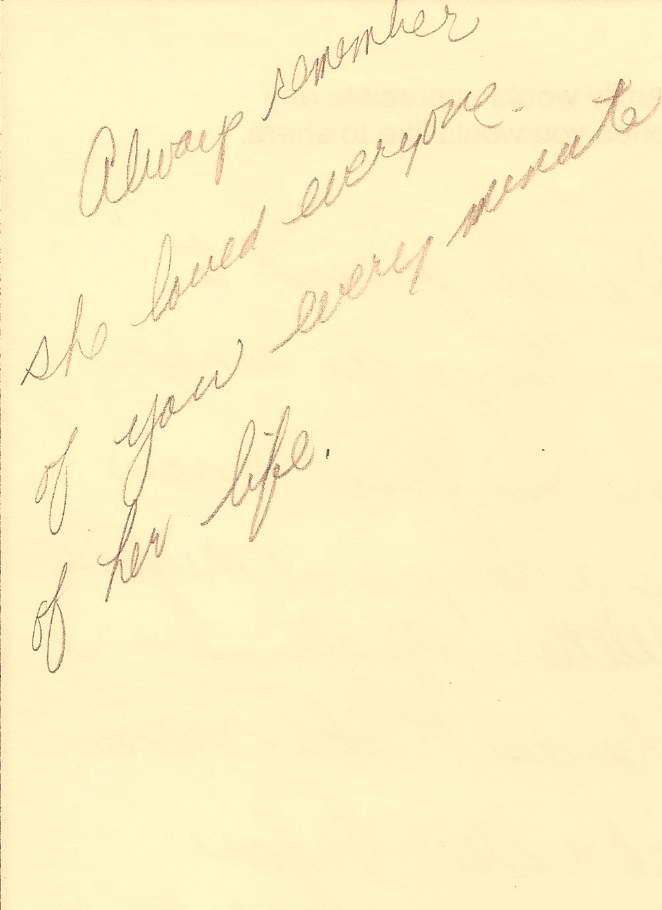 Always remember
she loved everyone
of you every minute
of her life.